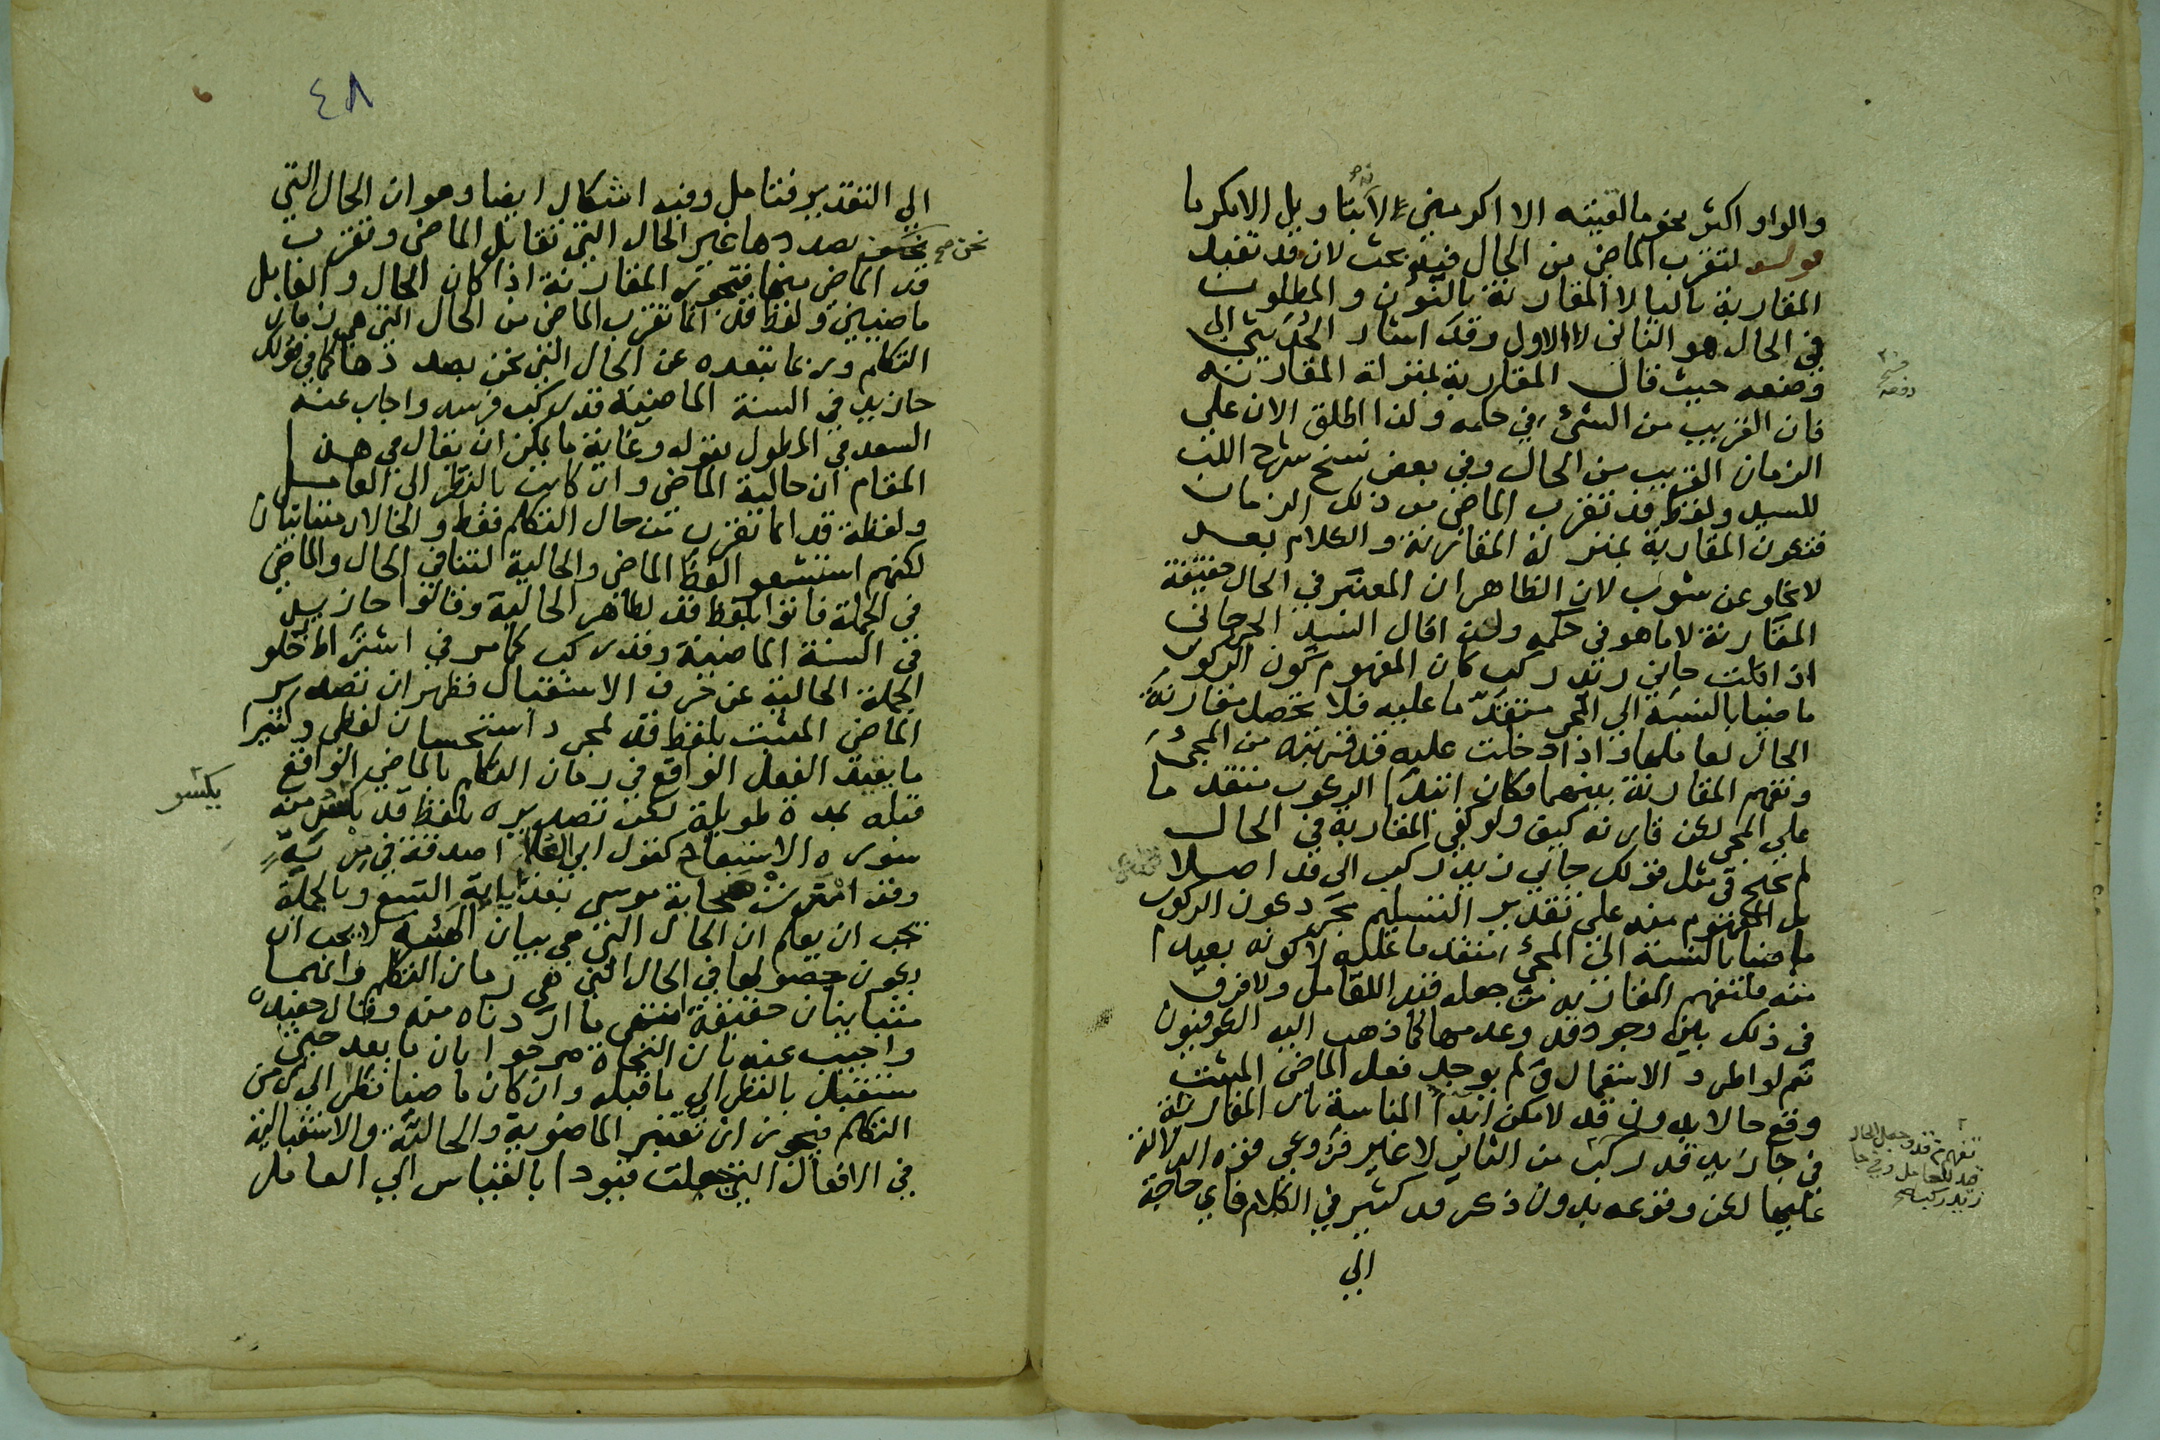 والواو اكثر نحو ما لقيته الا اكرمني لان تاويل الا مكرما
قوله لتقرب الماضي من الحال فيه بحث لان قد تفيد
المقاربة بالبا لا المقارنة بالنون والمطلوب
في الحال هو الثاني لا الاول وقد اشار المحشي الى
دفعه حيث قال المقاربة بمنزلة المقارنة
فان القريب من الشيء في حكمه ولذا اطلق الان على
الزمان القريب من الحال وفي بعض نسخ شرح اللب
للسيد ولفظ قد تقرب الماضي من ذلك الزمان
فتكون المقاربة بمنزلة المقارنة والكلام بعد
لا يخلو عن شوب لان الظاهر ان المعتبر في الحال حقيقة
المقارنة لا ما هو في حكمه ولذا قال السيد الجرجاني
اذا قلت جاني زيد ركب كان المفهوم كون الركوب
ماضيا بالنسبة الى المجي متقدما عليه فلا تحصل مقارنة
الحال لعاملها فاذا دخلت عليه قد قربته من المجيء
وتفهم المقارنة بينهما فكان ابتدا الركوب متقدما
على المجي لكن قارنه كيف ولو كفى المقاربة في الحال
لم نحتج في مثل قولك جاني زيد ركب الى قد اصلا
بل المفهوم منه على تقدير التسليم مجرد كون الركوب
ماضيا بالنسبة الى المجيء متقدما عليه لا كونه بعيدا
منه فتفهم المقاربة من جعله قيد اللعامل ولا فرق
في ذلك بين وجود قد وعدمها كما ذهب اليه الكوفيون
نعم لو اطرد الاستعمال ولم يوجد فعل الماضي المثبت
وقع حالا بدون قد لامكن ابدا المناسبة بان المقارنة
في جا زيد قد ركب من الثاني لا غير فردعى قوة الدلالة
عليها لكن وقوعه بدون ذكر قد كثير في الكلام فاي حاجة
الى
دفعه
تفهم قد وجعل الحال
قيد للعامل وفي جا
زيد ركب صح
٤٨
الى التقدير فتامل وفيه اشكال ايضا وهو ان الحال التي
نحن بصددها غير الحال التي تقابل الماضي وتقرب
نحن صح
قد الماضي منها فتجوز المقارنة اذا كان الحال والعامل
ماضيين ولفظ قد انما تقرب الماضي من الحال التي هي زمان
التكلم وربما تبعده عن الحال التي نحن بصددها كما في قولك
جا زيد في السنة الماضية قد ركب فرسه واجاب عنه
السعد في المطول بقوله وغاية ما يمكن ان يقال في هذا
المقام ان حالية الماضي وان كانت بالنظر الى العامل
ولفظة قد انما تقرب من حال التكلم فقط والحالان متباينان
لكنهم استبشعوا لفظ الماضي والحالية لتنافي الحال والماضي
في الجملة فاتوا بلفظ قد لظاهر الحالية وقالوا جا زيد
في السنة الماضية وقد ركب كما مر في اشتراط خلو
الجملة الحالية عن حرف الاستقبال فظهر ان تصدير
الماضي المثبت بلفظ قد لمجرد استحسان لفظي وكثيرا
ما يقيد الفعل الواقع في زمان التكلم بالماضي الواقع
قبله بمدة طويلة لكن تصديره بلفظ قد يكسر منه
يكسر
سورة الاستبعاد كقول ابي العلا اصدقه في مرية
وقد امترت صحابة موسى بعد اياته التسع وبالجملة
يجب ان يعلم ان الحال التي هي بيان الهيئة لا يجب ان
يكون حصولها في الحال التي هي زمان التكلم وانهما
متباينان حقيقة انتهى ما اردناه منه وقال حفيده
واجيب عنه بان النحاة صرحوا بان ما بعد حتى
مستقبل بالنظر الى ما قبله وان كان ماضيا نظرا الى زمن
التكلم فيجوز ان تعتبر الماضوية والحالية والاستقبالية
في الافعال التي جعلت قيودا بالقياس الى العامل